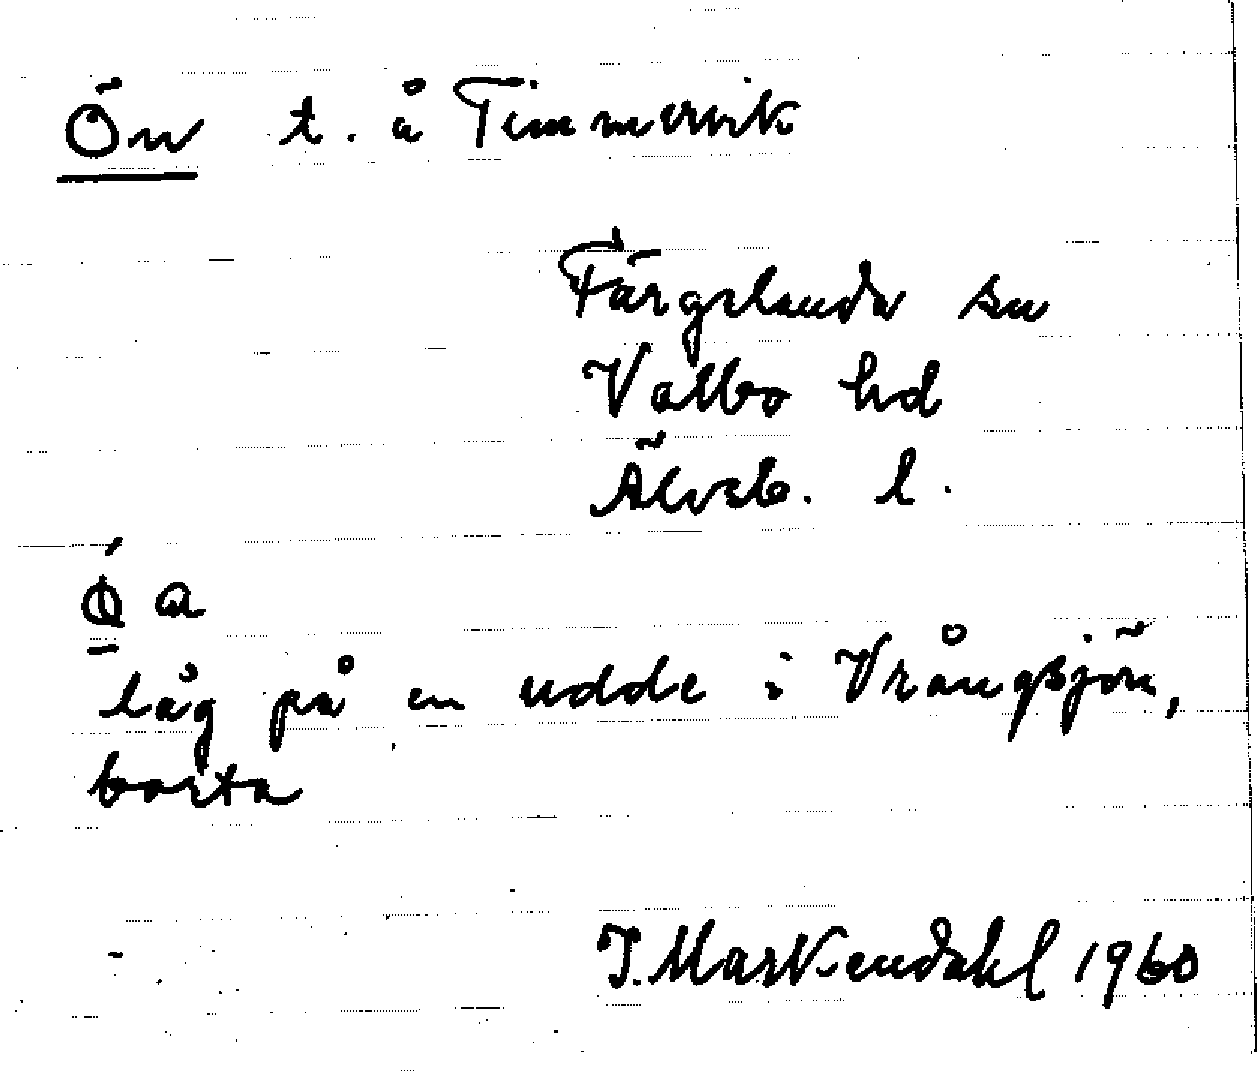 Ön t. å Timmervik
Färgelanda sn
Valbo hd
Älvsb. l.
Ǿ a
låg på en udde i Vrångsjön,
borta
J. Markendahl 1960